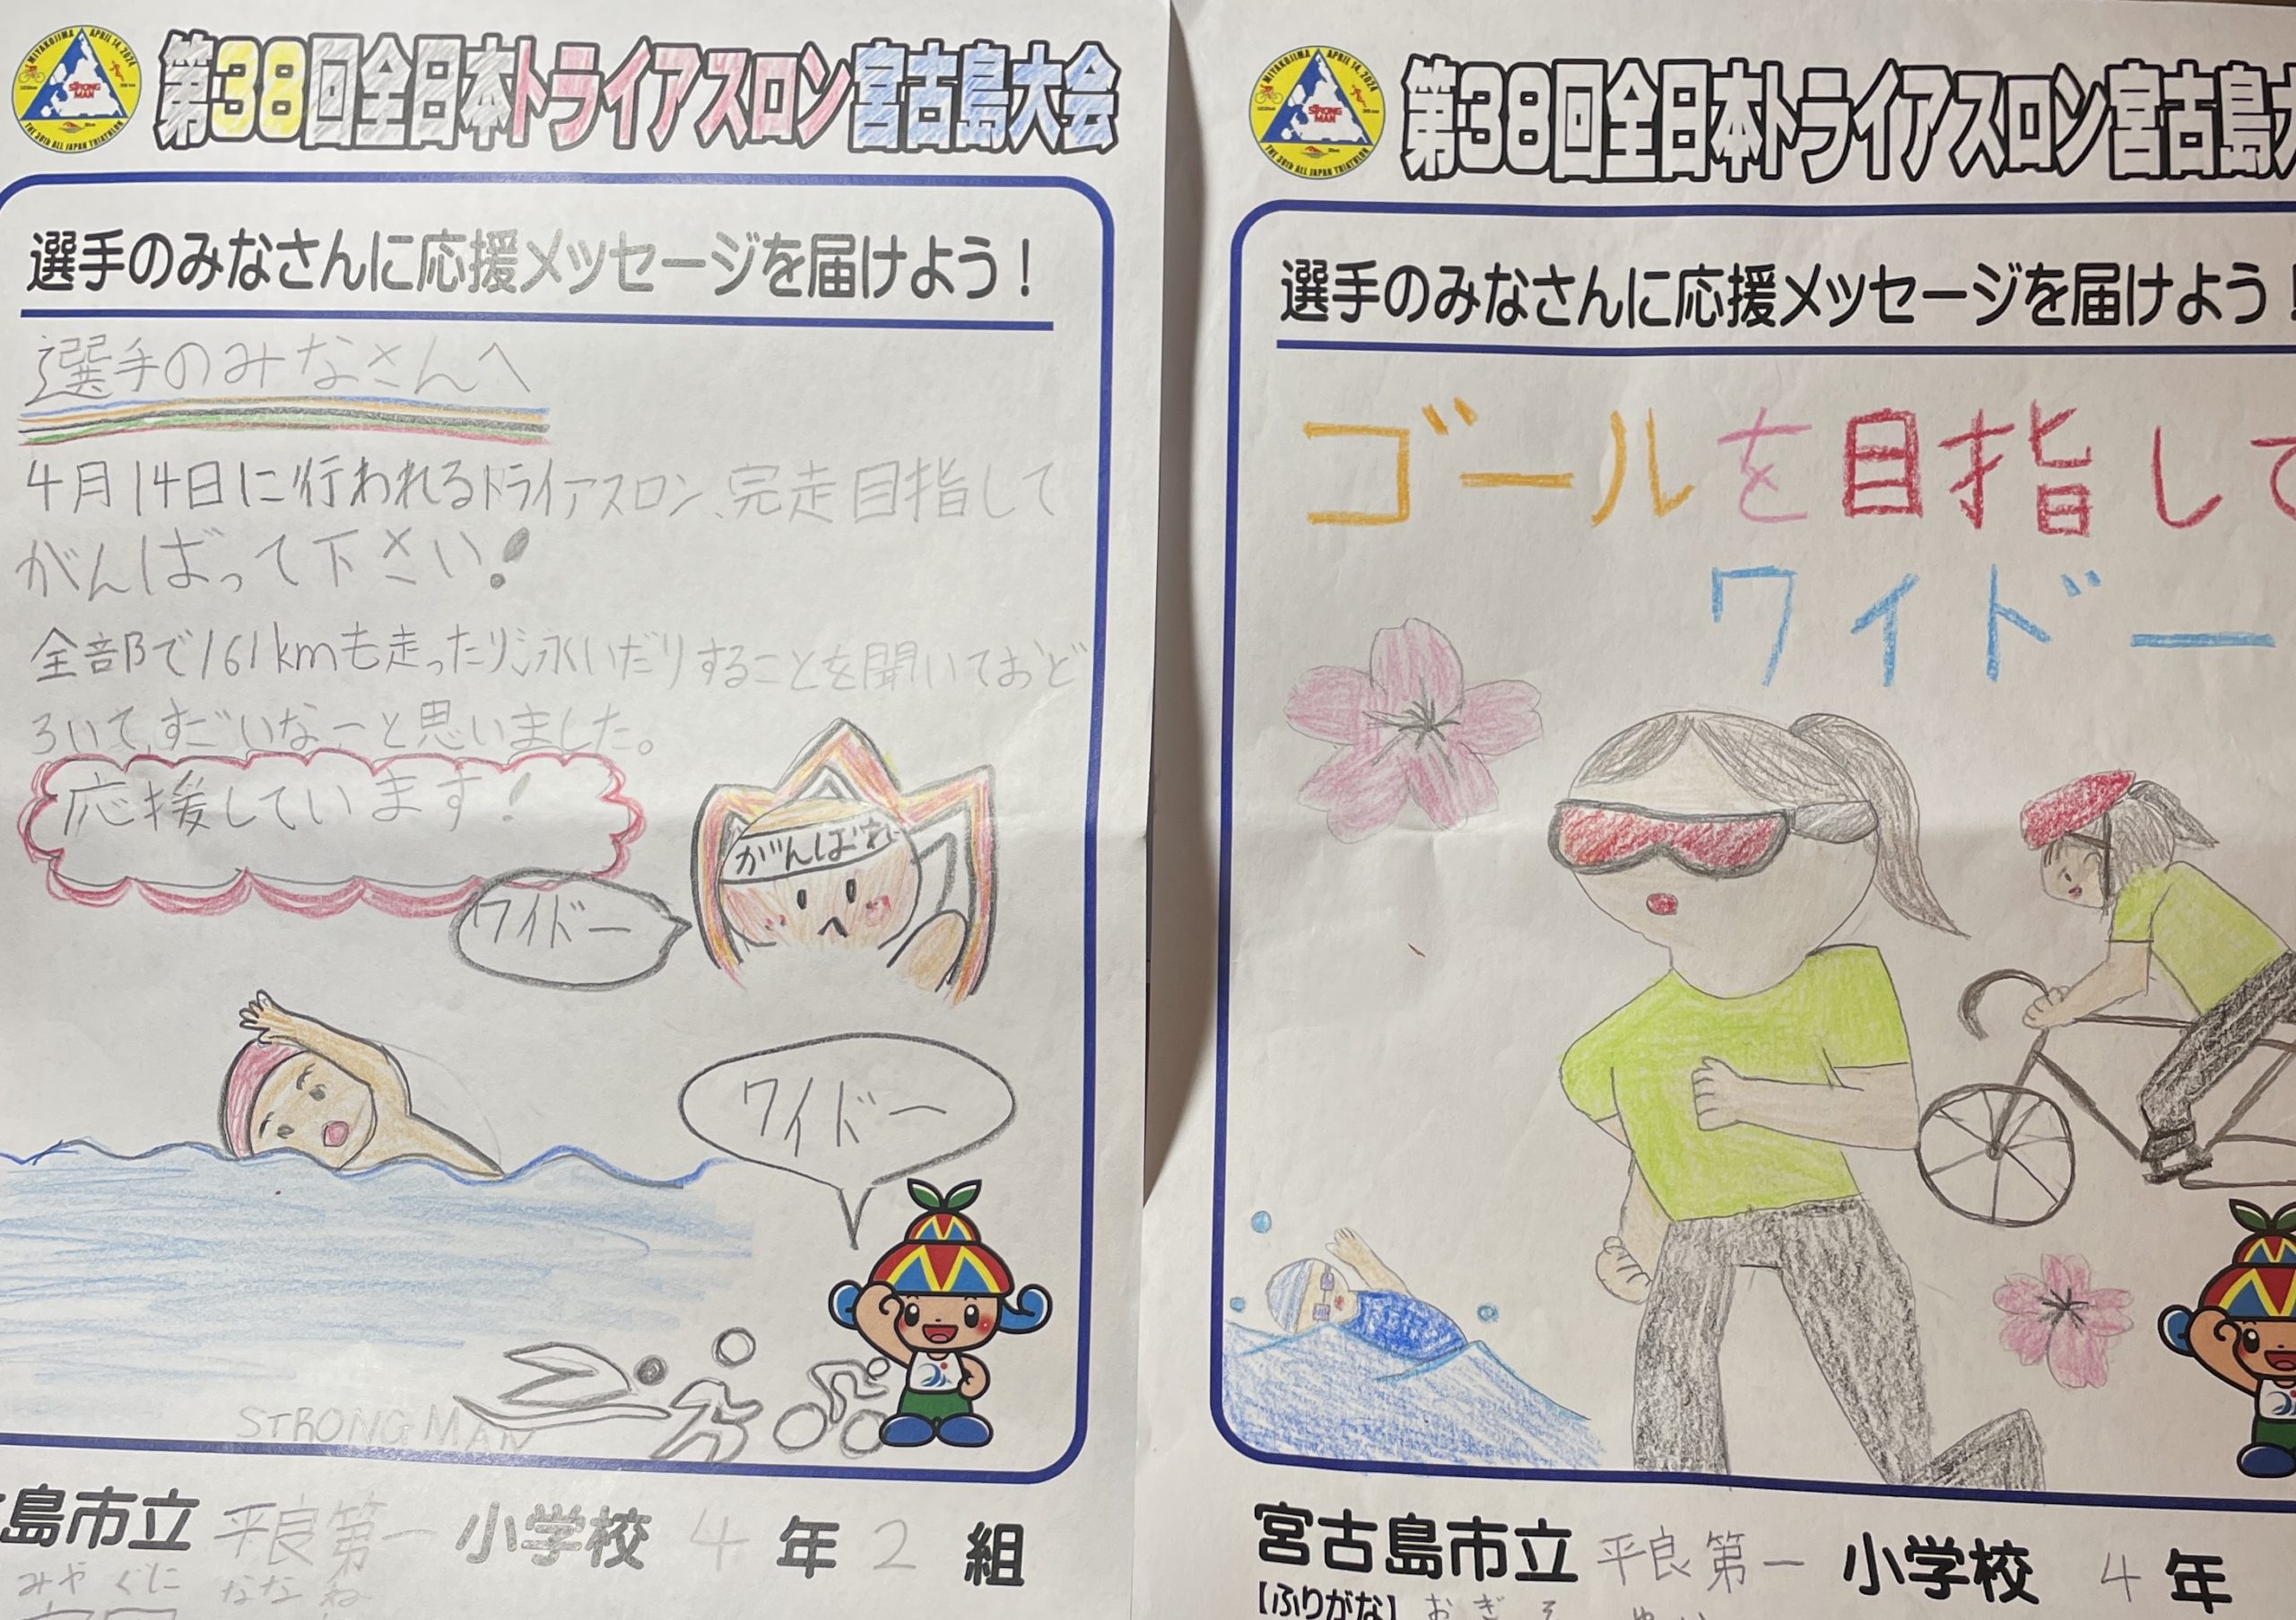 MIYAKOJIMA APRIL 14, 2024
STRONG MAN
THE 38th ALL JAPAN TRIATHLON
第38回全日本トライアスロン宮古島大会
選手のみなさんに応援メッセージを届けよう！
選手のみなさんへ
4月14日に行われるトライアスロン、完走目指して
がんばって下さい！
全部で161kmも走ったり泳いだりすることを聞いておど
ろいて、すごいなーと思いました。
応援しています！
がんばれ
ワイドー
ワイドー
STRONGMAN
島市立 平良第一 小学校 4 年 2 組
みやぐに ななね
MIYAKOJIMA APRIL 14, 2024
STRONG MAN
THE 38th ALL JAPAN TRIATHLON
第38回全日本トライアスロン宮古島大
選手のみなさんに応援メッセージを届けよう！
ゴールを目指して
ワイドー
宮古島市立 平良第一 小学校 4 年
【ふりがな】 おぎ